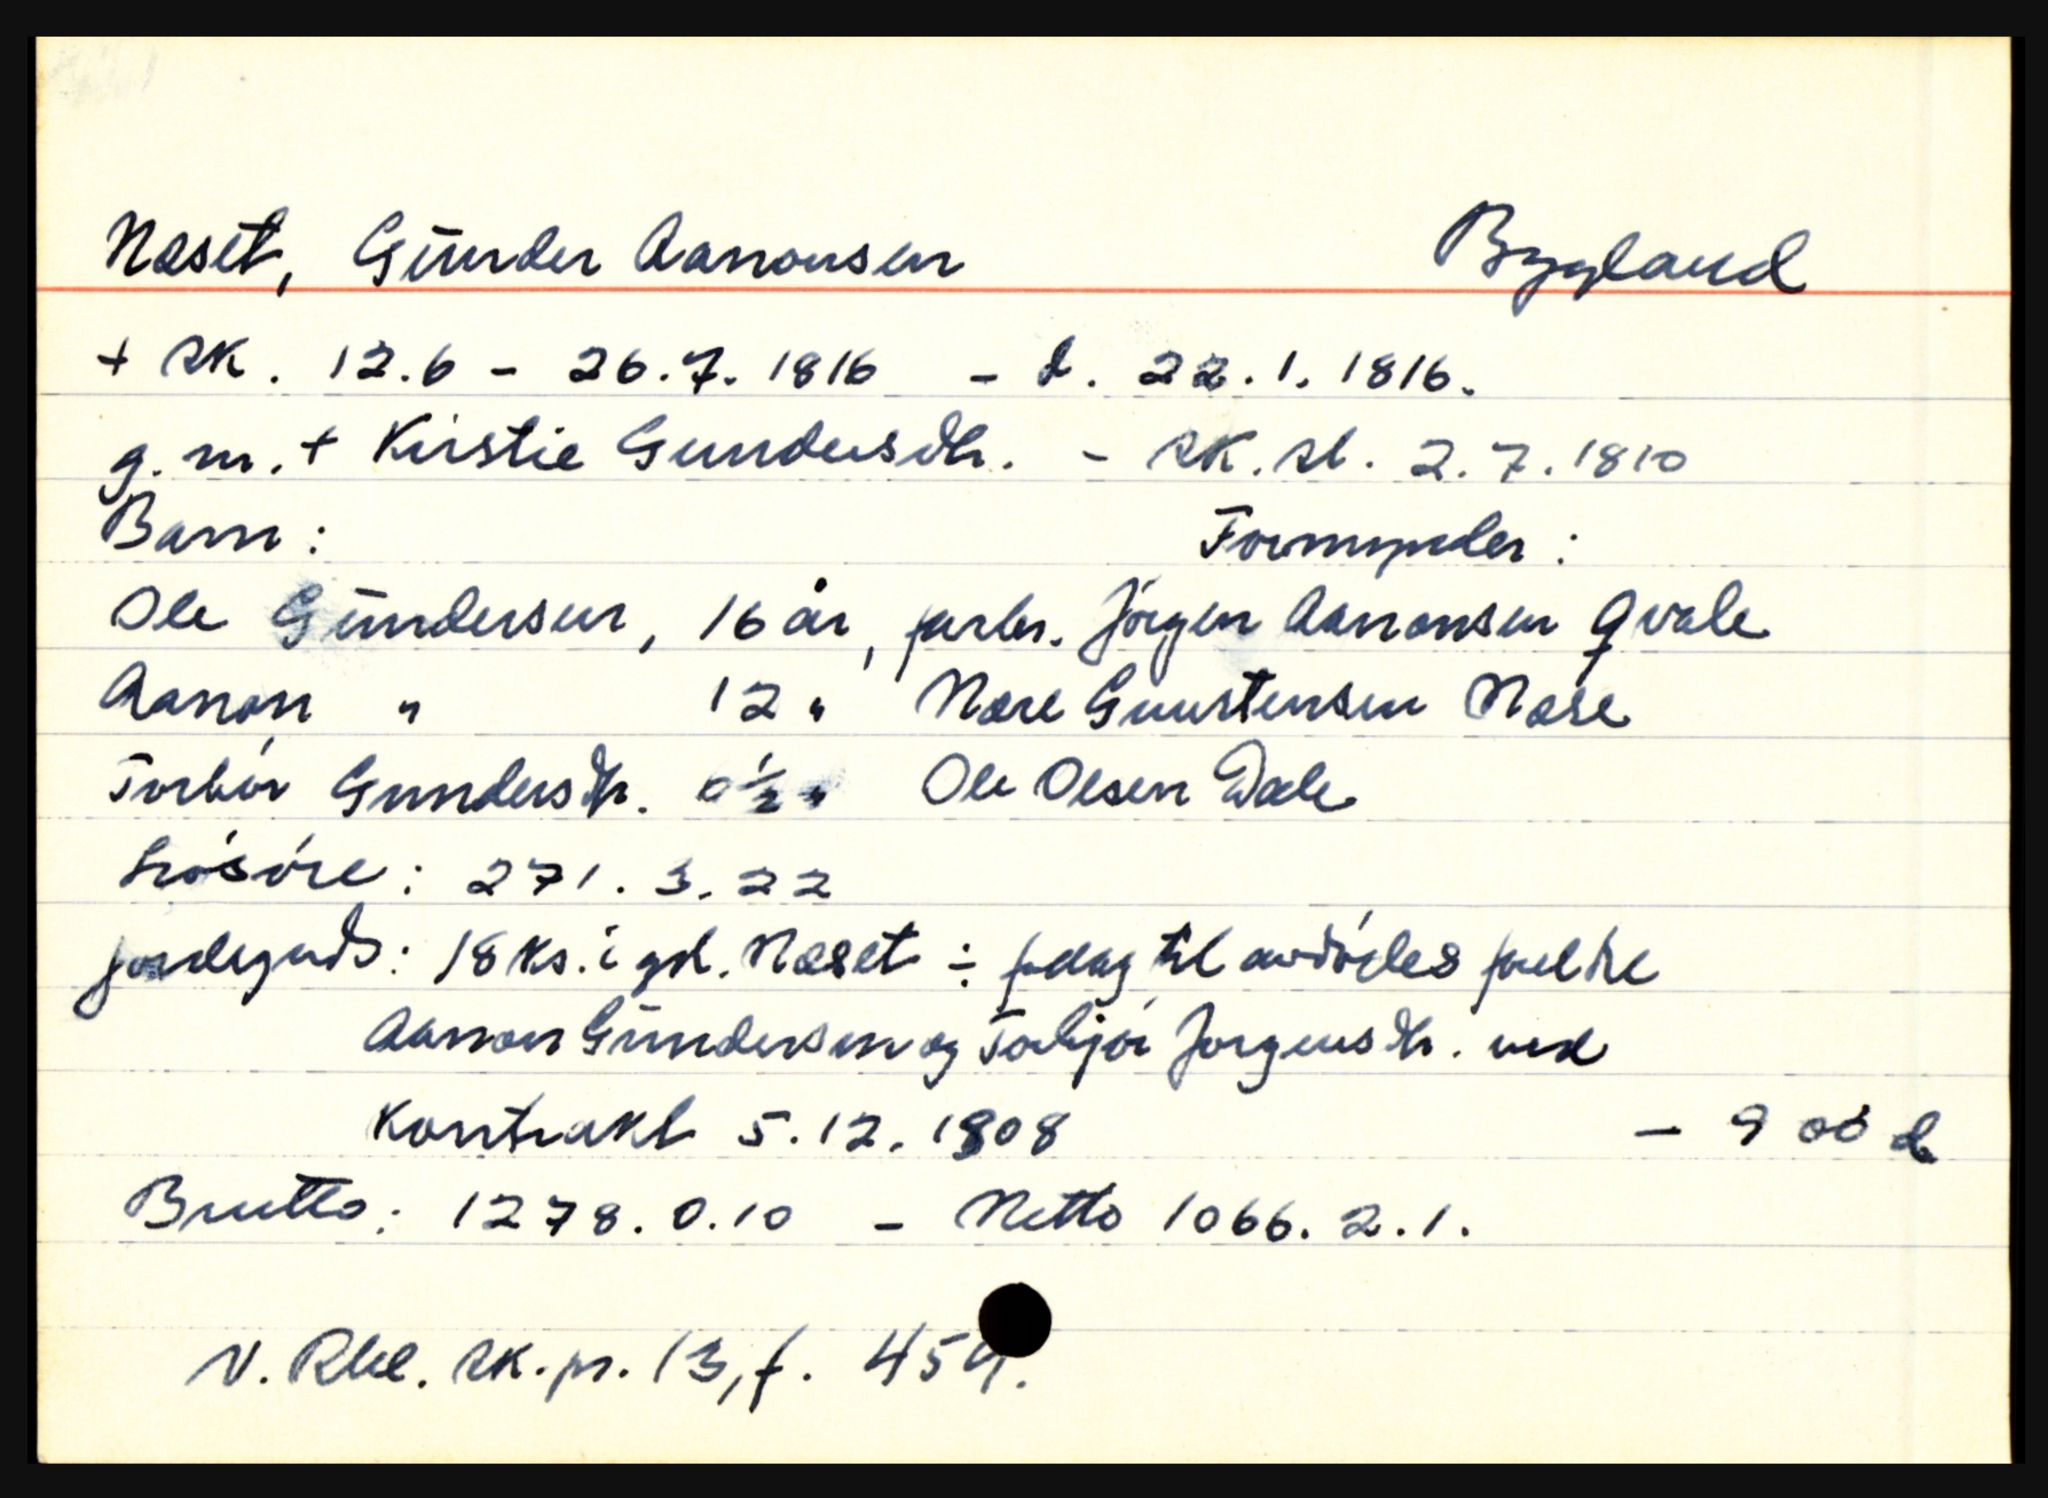 Næset, Gunder Aanonsen Bygland
+ sk. 12.6 - 26.7.1816 - d. 22.1.1816.
g.m. + Kirstie Gundersdtr. - sk.sl. 2.7.1810
Barn: Formynder:
Ole Gundersen, 16 år, farbr. Jörgen Aanonsen Qvale
Aanon " 12 " Nære Gunstensen Næse
Torbör Gundersdtr. 6½ " Ole Olsen Dale
Lösöre: 271.3.22
Jordegods: 18 ks. i gd. Næset ÷ fdlag til avdödes foreldre
Aanon Gundersen og Torbjör Jorgensdtr. ved
Kontrakt 5.12.1808 - 900 d
Brutto: 1278.0.10 - Netto 1066.2.1.
N. Rbl. sk.pr. 13, f. 459.